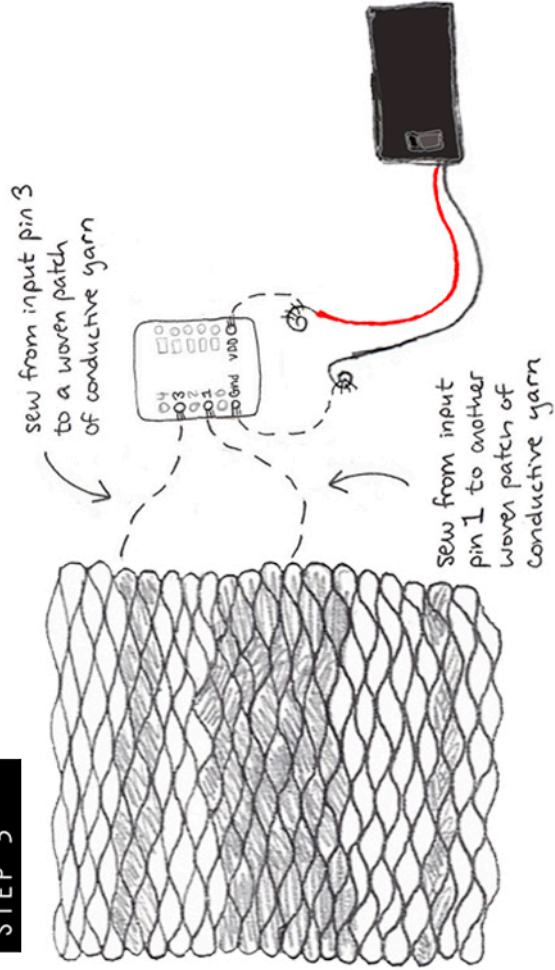 STEP 5
sew from input pin 3
to a woven patch
of conductive yarn
4
3
2
1
0
Gnd
VDD
sew from input
pin 1 to another
woven patch of
conductive yarn